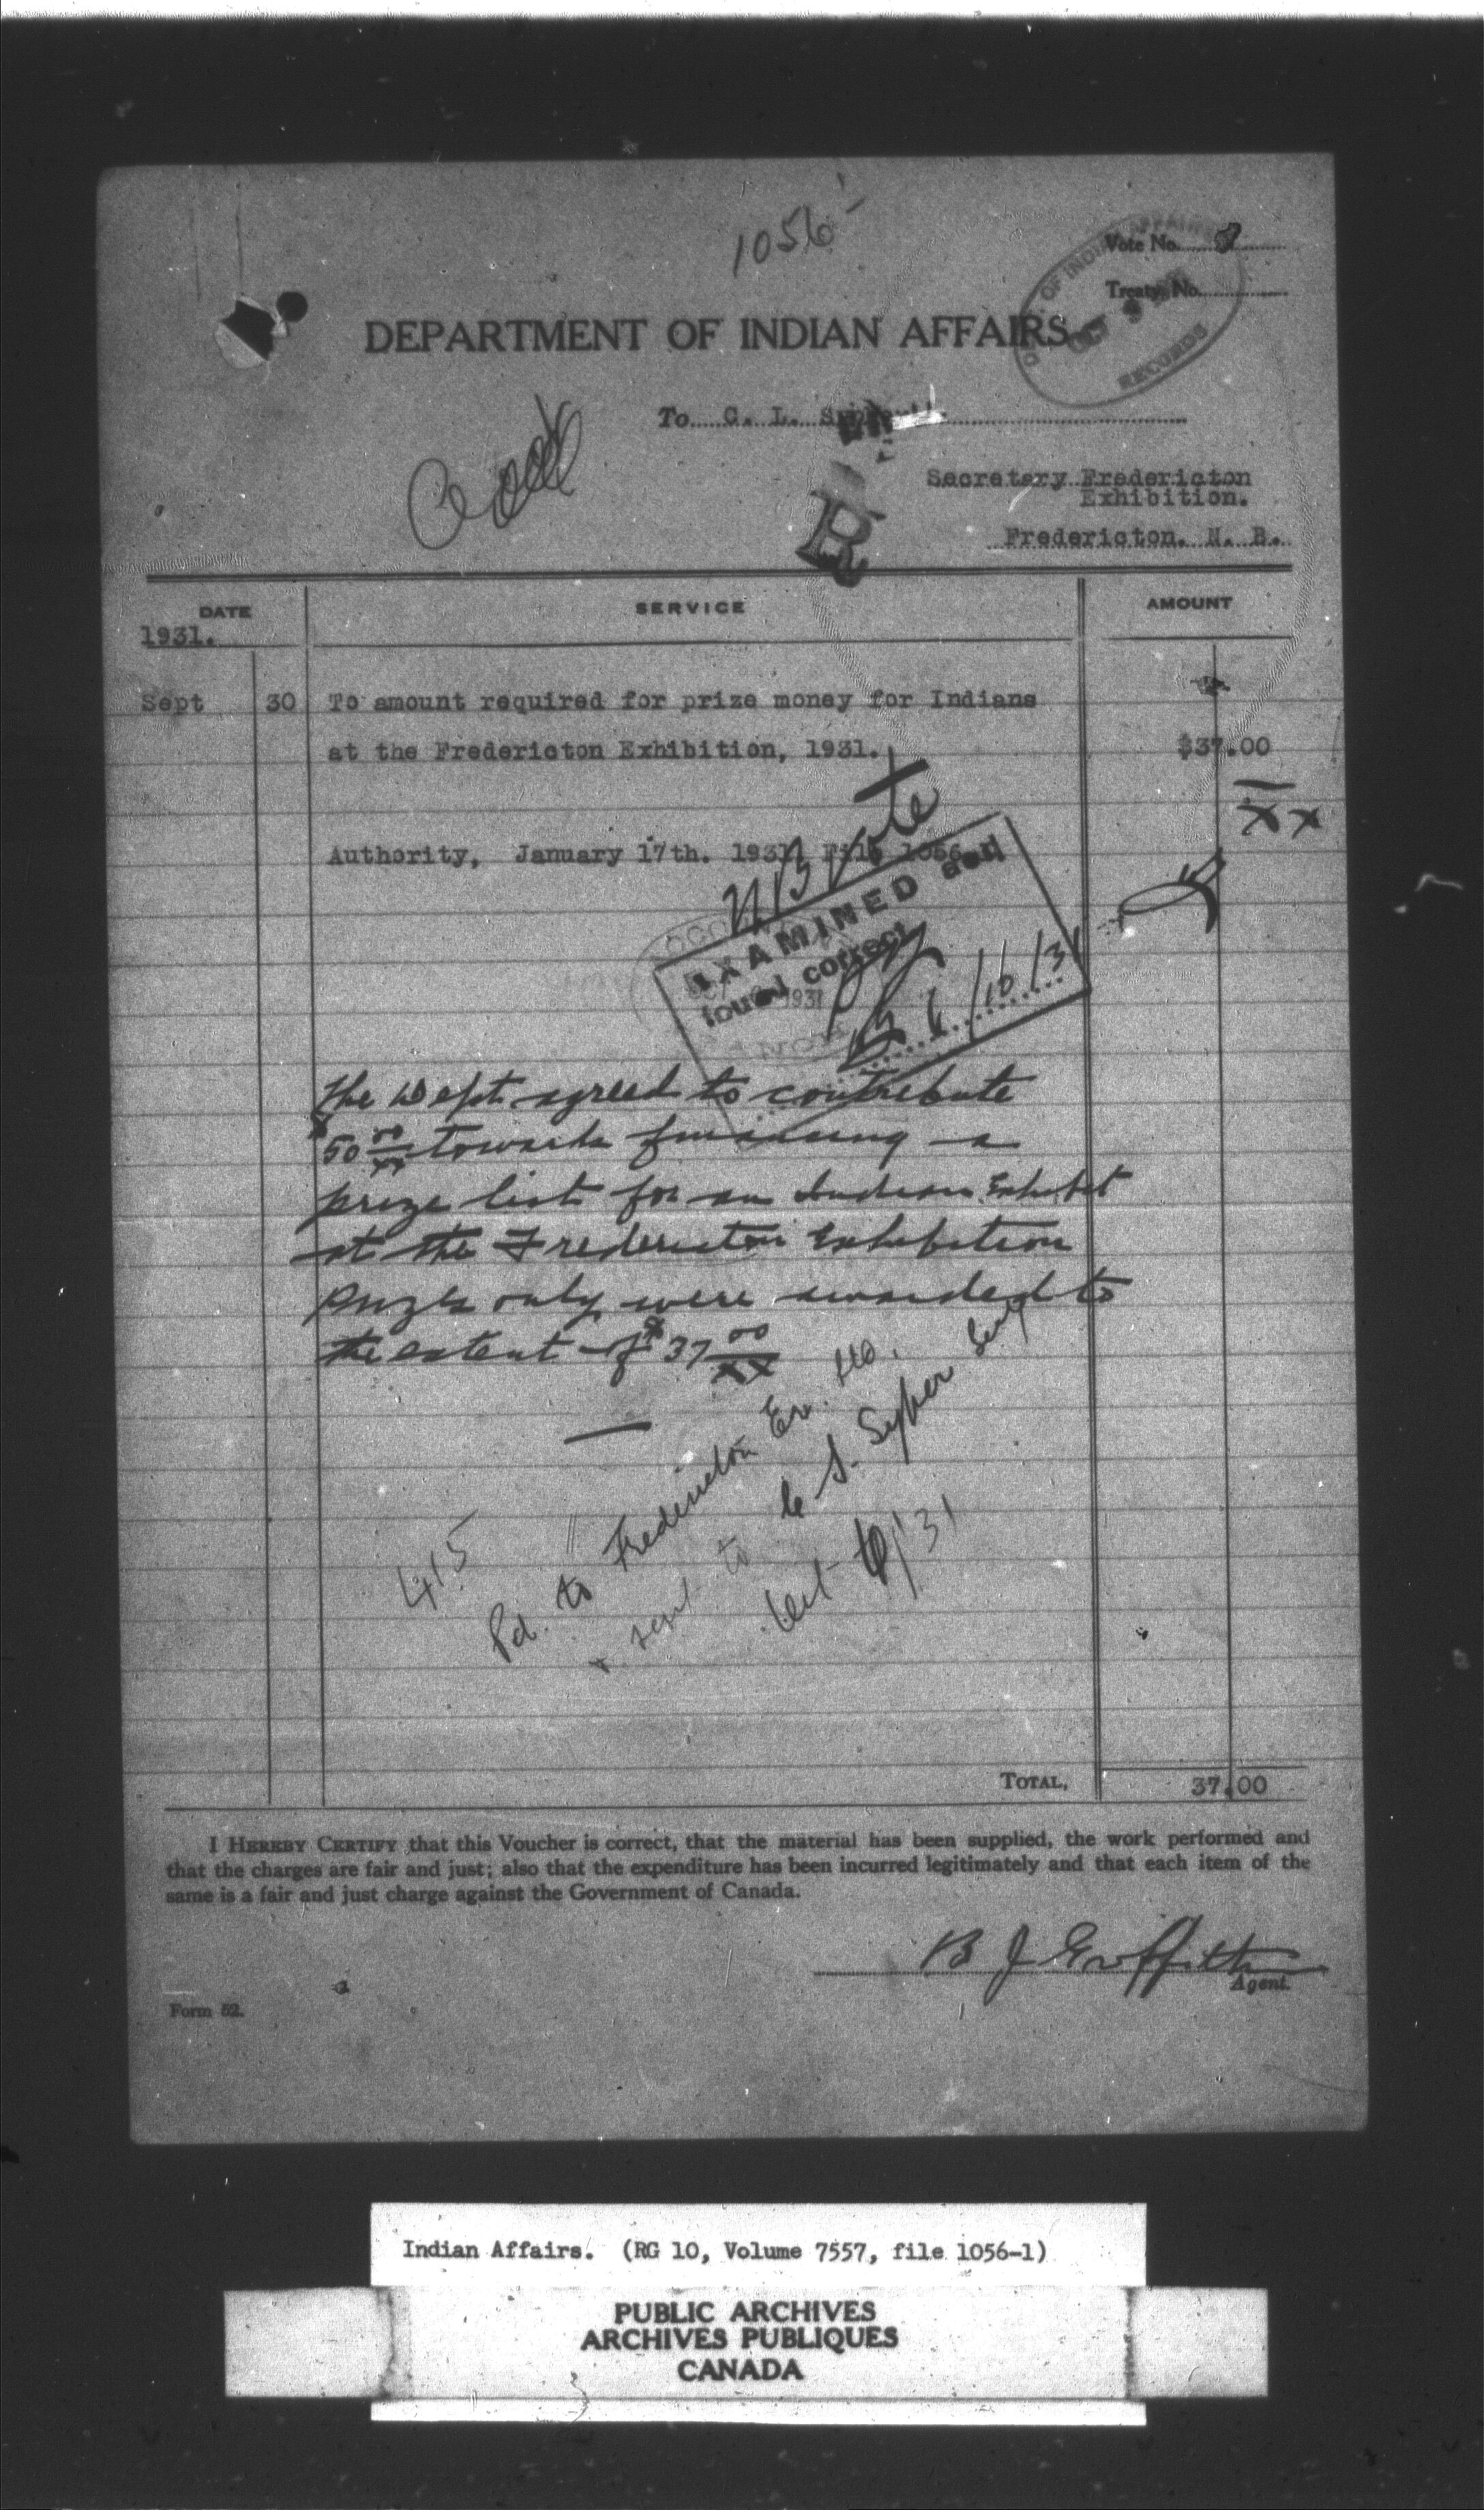 1056
Vote No. 
Treaty No.
OF INDIAN AFFAIRS
OCT
RECORDS
DEPARTMENT OF INDIAN AFFAIRS
To C. L.
R
Secretary Fredericton
Exhibition.
Fredericton. N. B.
DATE SERVICE AMOUNT
1931.
Sept 30 To amount required for prize money for Indians
at the Fredericton Exhibition, 1931. $37.00
xx
Authority, January 17th. 1931 File 1056
NB Vote
EXAMINED and
found correct
6/10/31
1931
The Dept. agreed to contribute
$50 00/xx towards financing a
prize list for an Indian Exhibit
at the Fredericton Exhibition
Prizes only were awarded to
the extent of $37 00/xx
415
Pd. to Fredericton Ex.
sent to
Oct /31
TOTAL, 37.00
I HEREBY CERTIFY that this Voucher is correct, that the material has been supplied, the work performed and
that the charges are fair and just; also that the expenditure has been incurred legitimately and that each item of the
same is a fair and just charge against the Government of Canada.
B J Griffith
Agent.
Form 52.
Indian Affairs. (RG 10, Volume 7557, file 1056-1)
PUBLIC ARCHIVES
ARCHIVES PUBLIQUES
CANADA